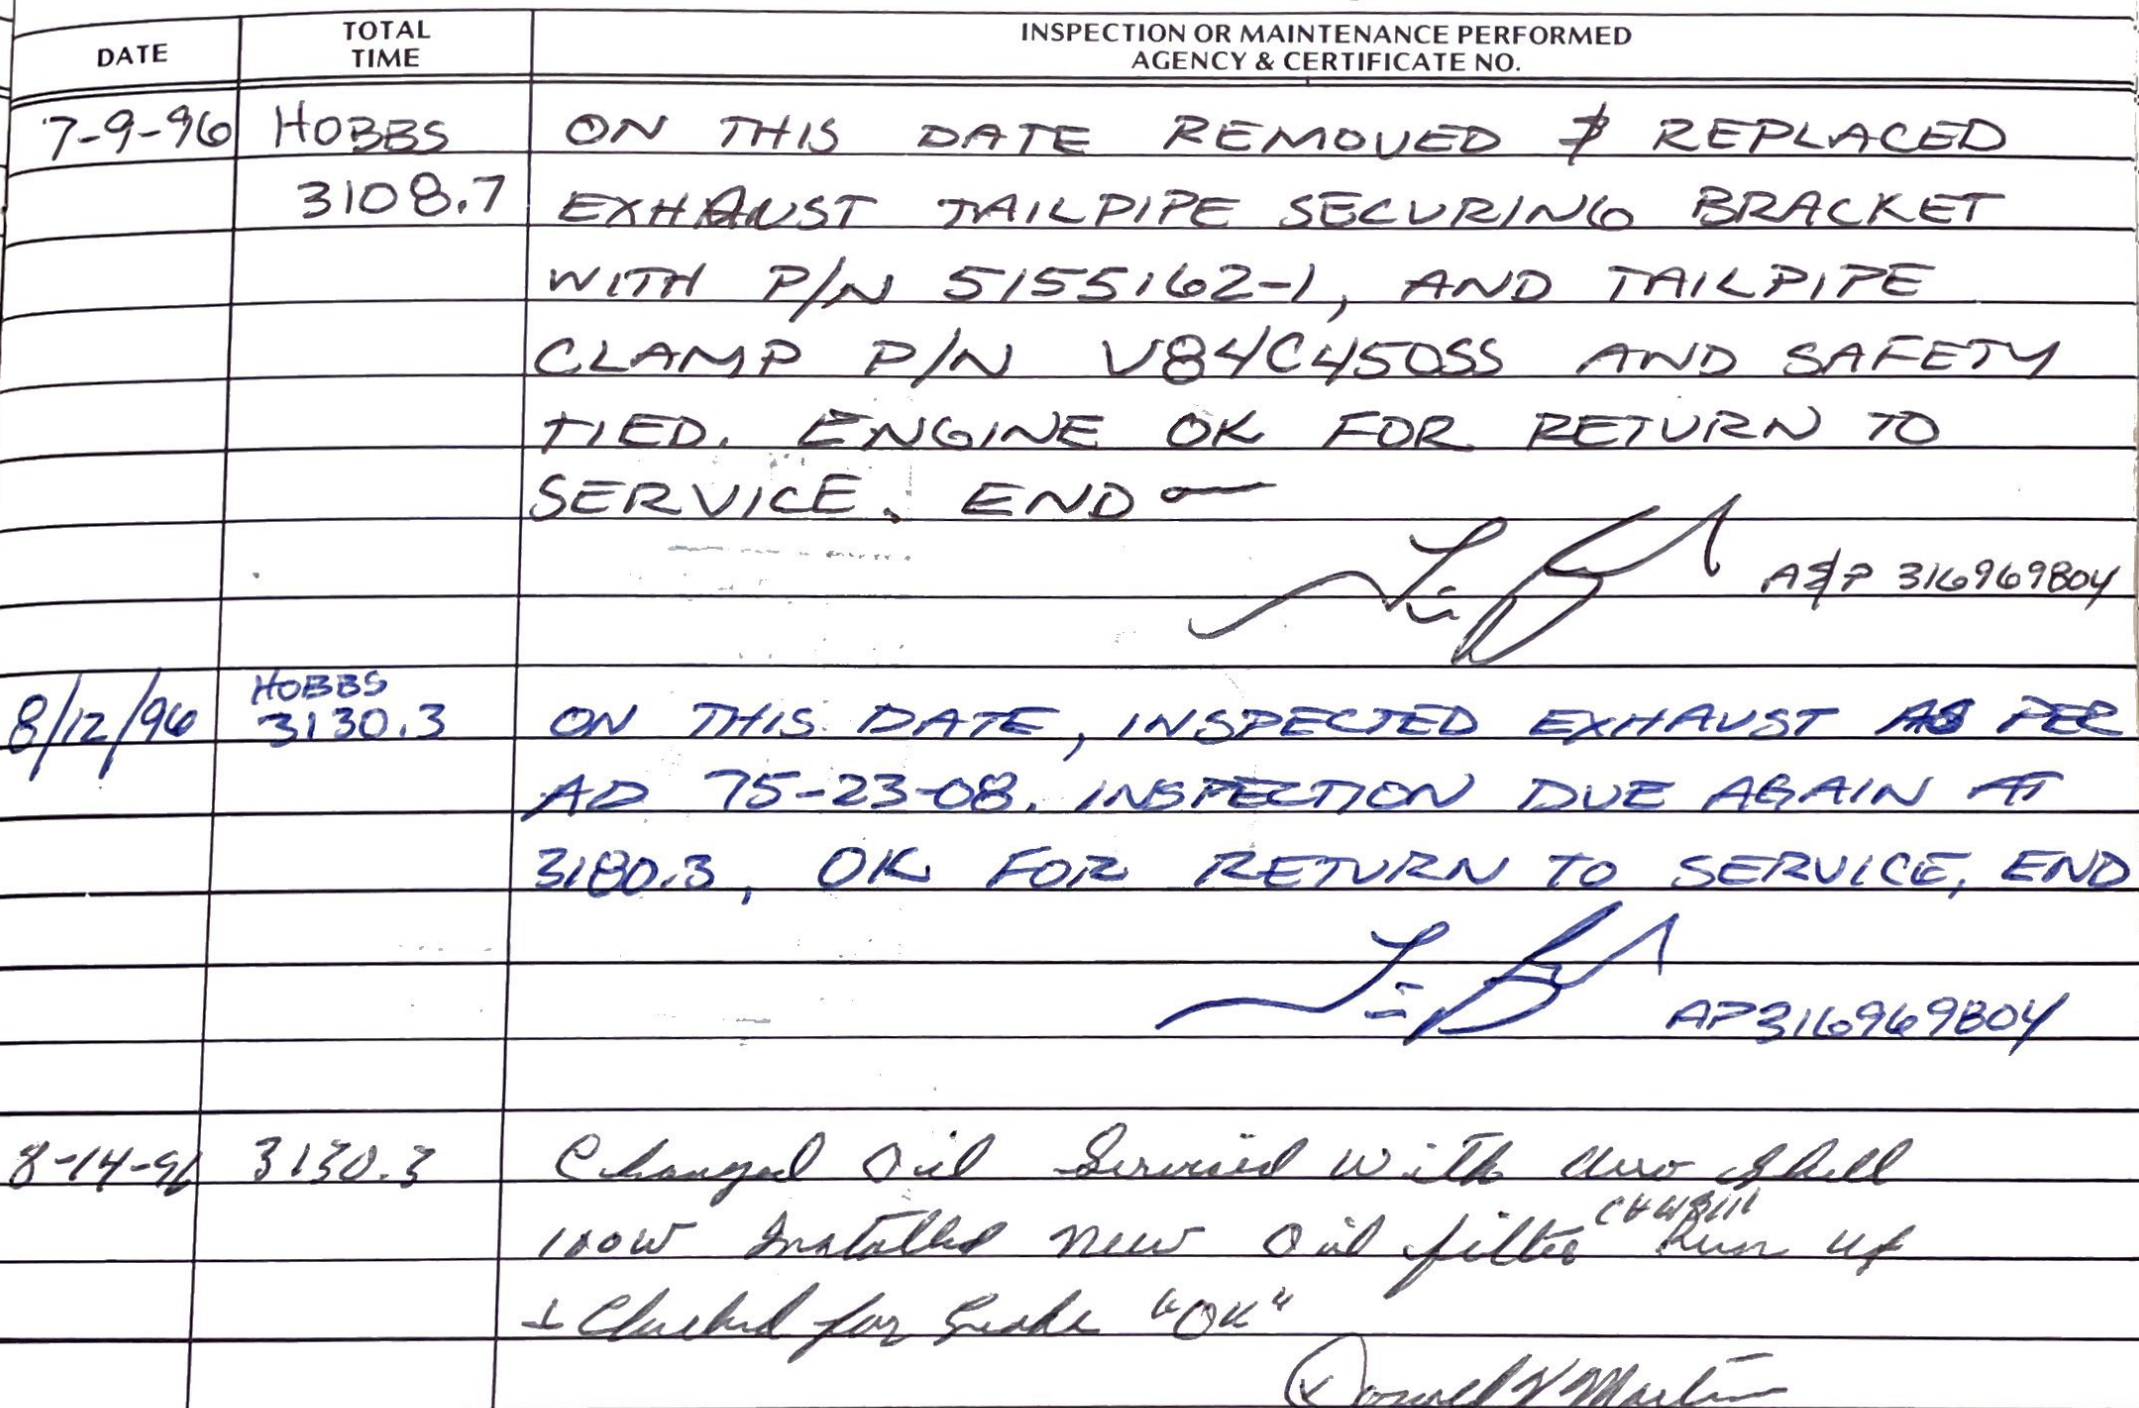 DATE TOTAL TIME INSPECTION OR MAINTENANCE PERFORMED
AGENCY & CERTIFICATE NO.
7-9-96 HOBBS ON THIS DATE REMOVED & REPLACED
3108.7 EXHAUST TAILPIPE SECURING BRACKET
WITH P/N 5155162-1, AND TAILPIPE
CLAMP P/N V84C450SS AND SAFETY
TIED. ENGINE OK FOR RETURN TO
SERVICE. END
A&P 316969804
HOBBS
8/12/96 3130.3 ON THIS DATE, INSPECTED EXHAUST AS PER
AD 75-23-08. INSPECTION DUE AGAIN AT
3180.3, OK FOR RETURN TO SERVICE, END
AP316969804
8-14-96 3130.3 Changed Oil Serviced With Aero Shell
100W Installed New Oil filter Run up
+ Checked for Leaks "OK"
Martin